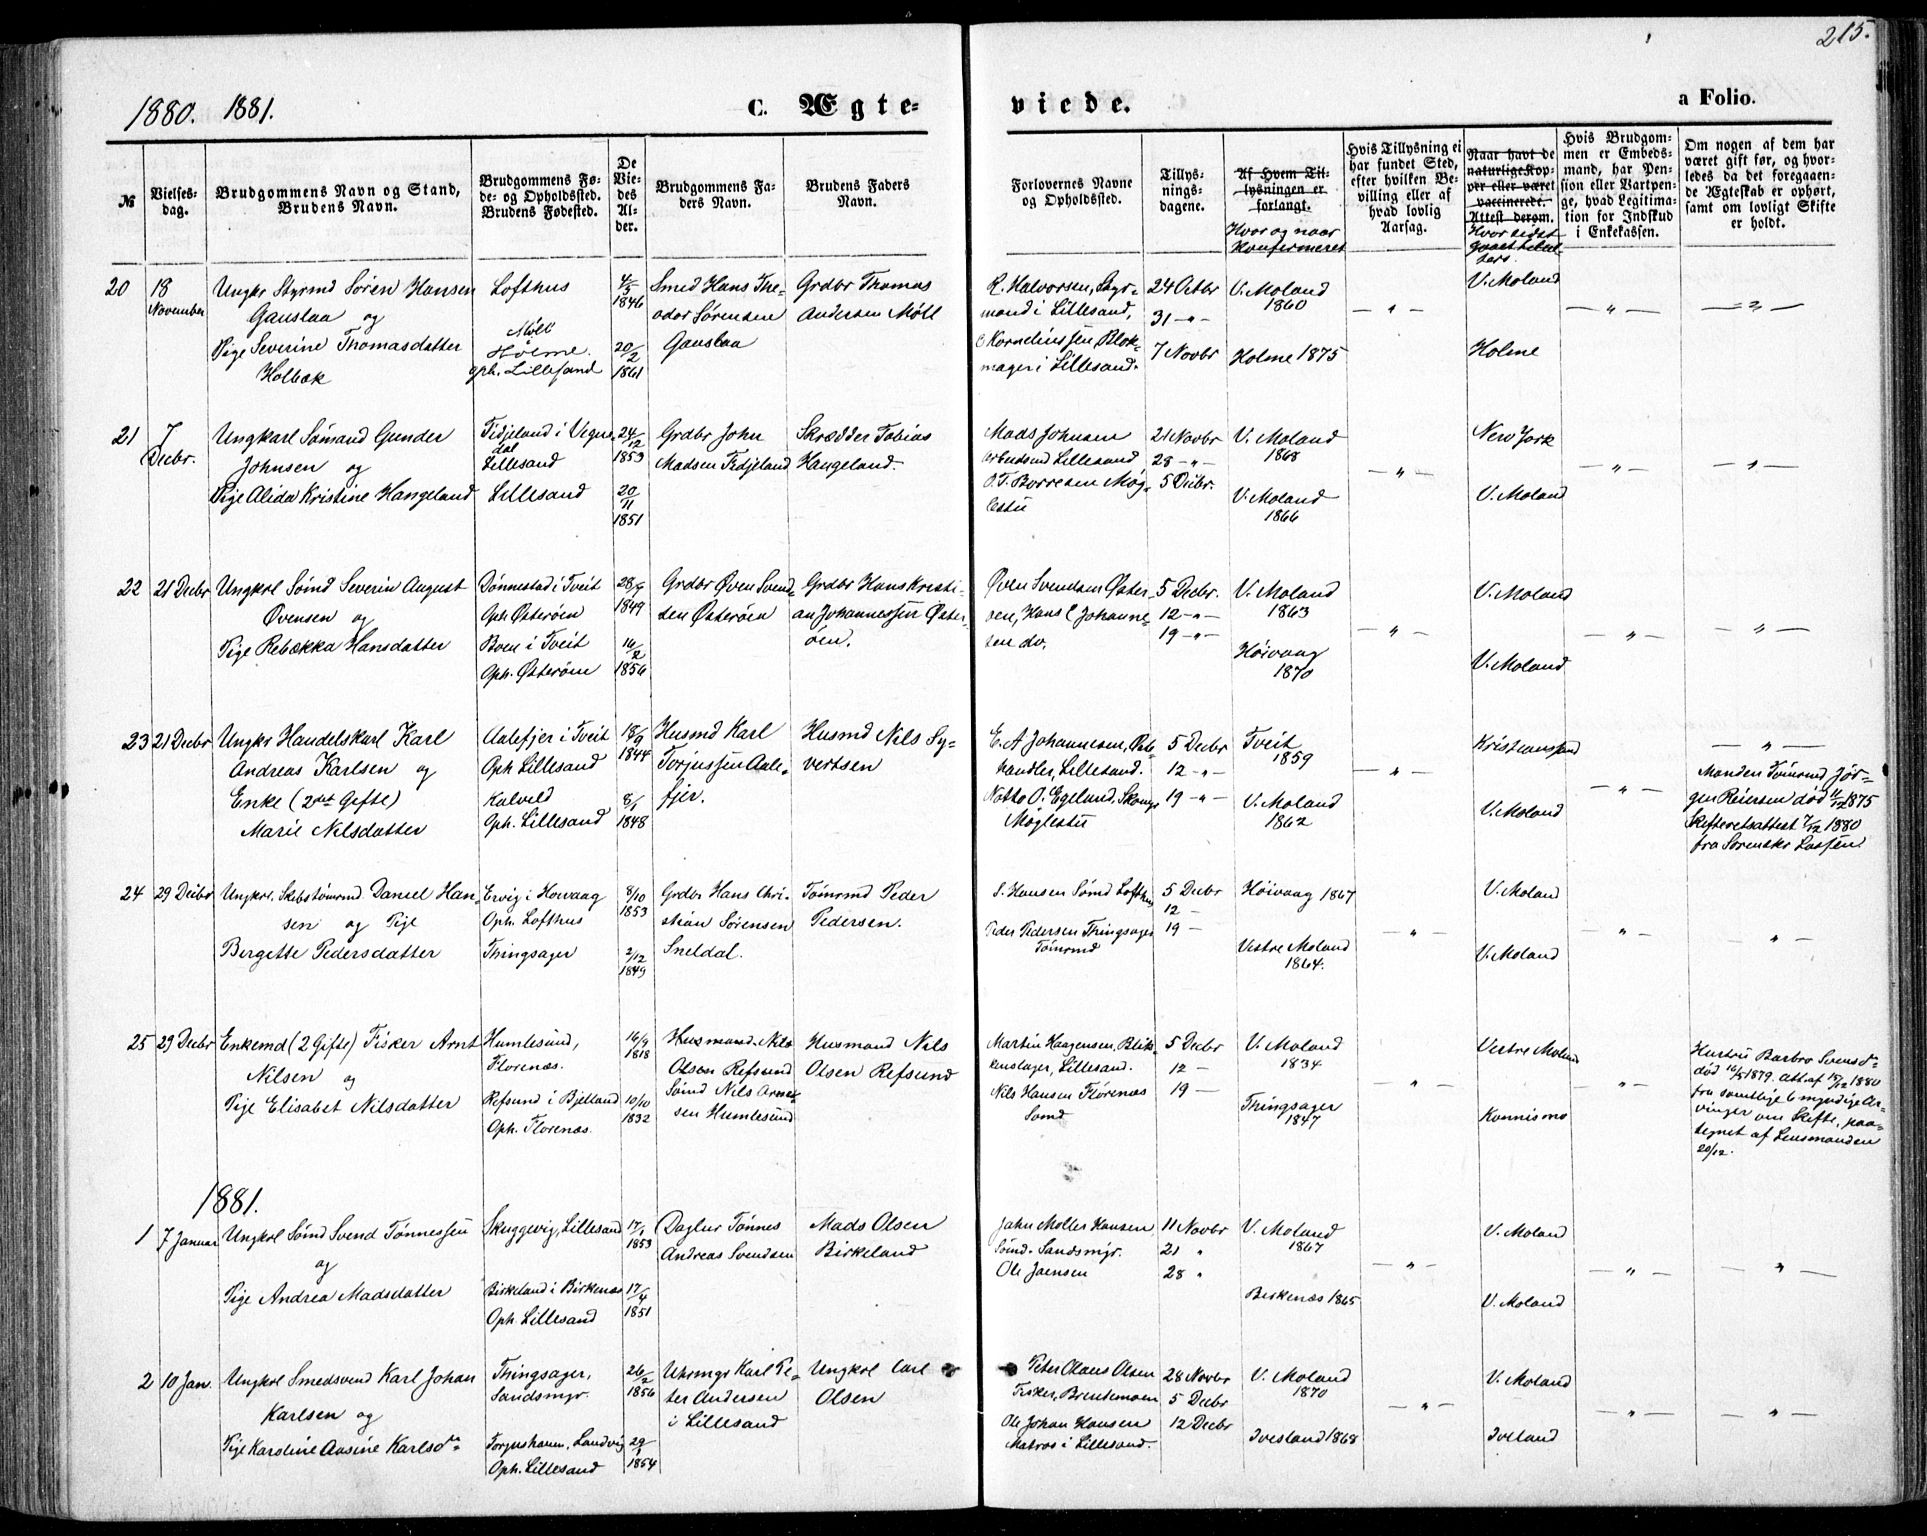 215.
1880. 1881.
C. Ægteviede.
a Folio.
№
Vielsesdag.
Brudgommens Navn og Stand,
Brudens Navn.
Brudgommens Føde- og Opholdssted.
Brudens Fødested.
De Viedes Alder.
Brudgommens Faders Navn.
Brudens Faders Navn.
Forlovernes Navne
og Opholdssted.
Tillysningsdagene.
Af Hvem Tillysningen er forlangt.
Hvor og naar
Konfirmeret
Hvis Tillysning ei
har fundet Sted,
efter hvilken Bevilling eller af
hvad lovlig
Aarsag.
Naar havt de
naturlige Kopper eller været
vaccinerede.
Attest derom.
Hvor sidst
gaaet til alters.
Hvis Brudgommen er Embedsmand, har Pension eller Vartpenge, hvad Legitimation for Indskud
i Enkekassen.
Om nogen af dem har
været gift før, og hvorledes da det foregaaende Ægteskab er ophørt,
samt om lovligt Skifte
er holdt.
20
18
November
Ungkr Styrmd Søren Hansen
Gauslaa
og
Pige Severine Thomasdatter
Holbæk
Lofthus
Møll
Holme.
oph. Lillesand
4/5
1846
20/2
1861
Smed Hans Theodor Sørensen
Gauslaa
Grdbr Thomas
Andersen Møll
R. Halvorsen, Styrmand i Lillesand,
Korneliussen, Blokmager i Lillesand.
24 Octbr
31 -"-
7 Novbr
V. Moland
1860
Holme 1875
V. Moland
Holme
21
7
Decbr.
Ungkarl Sømand Gunder
Johnsen og
Pige Alida Kristine Hangeland
Tidjeland i Vegusdal
Lillesand
Lillesand
24/12
1853
20/11
1851
Grdbr John
Madsen Tidjeland
Skrædder Tobias
Haugeland.
Mads Johnsen
arbeidsmd Lillesand
O. T. Borresen Møglestu
21 Novbr
28 -"-
5 Decbr.
V. Moland
1868
V. Moland
1866
New York
V. Moland
22
21 Decbr
Ungkrl Sømd Severin August
Øvensen og
Pige Rebækka Hansdatter
Dønnestad i Tveit
Oph Østerøen
Boen i Tveit
Oph. Østerøen
1849
16/2
1856
Grdbr Øven Svendsen Østerøen
Grdbr Hans Kristian Johannessen Østerøen.
Øven Svendsen Østerøen, Hans C Johannesen do.
5 Decbr.
12 -"-
19 -"-
V. Moland
1863
Høivaag
1870
V. Moland
V. Moland
23
21 Decbr
Ungkr Handelskarl Karl
Andreas Karlsen og
Enke (2det Gifte)
Marie Nilsdatter
Aalefjer i Tveit
Oph Lillesand
Kalveld
Oph. Lillesand
18/9
1844
8/1
1848
Husmd Karl
Torjussen Aalefjer.
Husmd Nils Syvertsen
E. A Johannesen,
handler, Lillesand.
Notto O. Egeland,
Møglestu
5 Decbr
12 -"-
19 -"-
Tveit
1859
V. Moland
1862
Kristiansand
V. Moland
Manden Tømrmd Jørgen Reiersen død 11/12 1875
Skifteretsattest 7/12 1880
fra Sorenskr Lassen
24
29 Decbr
Ungkrl. Skibstømrmd Daniel Hansen og Pige
Bergette Pedersdatter
Ervig i Høivaag
Oph. Lofthus
Thingsager
8/10
1853
2/12
1849
Grdbr Hans Christian Sørensen
Sneldal.
Tømrmd Peder
Pedersen.
S. Hansen Sømd Lofthus
Peder Pedersen Thingsager
Tømrmd
5 Decbr
12 -
19 -
Høivaag 1867
Vestre Moland
1864.
V. Moland
V. Moland
25
29 Decbr
Enkemd (2 Gifte) Fisker Arnt
Nilsen og
Pige Elisabet Nilsdatter
Humlesund,
Florenæs.
Refsund i Bjelland
Oph. Florenæs.
16/9
1818
10/10
1832
Husmand Nils
Olsen Refsund
Sømd Nils Arnesen Humlesund
Husmand Nils
Olsen Refsund
Martin Haagensen, Blikkenslager, Lillesand.
Nils Hansen Florenæs
Sømd
5 Decbr
12 -
19 -
V. Moland
1834
Thingsager
1847
Vestre Moland
Konnismo
Hustru Barbro Svensdr
død 16/8 1879. Att. af 15/12 1880
fra samtlige 6 myndige Arvinger om Skifte, paategnet af Lensmanden
20/12.
1881.
1
7 Januar
Ungkrl Sømd Svend Tønnessen
og
Pige Andrea Madsdatter
Skuggevig, Lillesand
Birkeland i Birkenæs
Oph. Lillesand
17/1
1853
17/4
1851
Daglnr Tønnes
Andreas Svendsen
Mads Olsen
Birkeland
Jahn Møller Hansen
Sømd. Sandsmyr.
Ole Jaensen
11 Novbr
21 "
28 "
V. Moland
1867
Birkenæs 1865
V. Moland
V. Moland
2
10 Jan.
Ungkrl Smedsvend Karl Johan
Karlsen og
Pige Karoline Ausine Karlsdr
Thingsager,
Sandsmyr.
Torjushavn, Landvig
Oph. Lillesand
26/2
1856
29/1
1854
Uhrmgr Karl Peter Andersen
i Lillesand
Ungkrl Carl
Olsen
Peter Olaus Olsen
Fisker, Brentemoen
Ole Johan Hansen
Matros i Lillesand.
28 Novbr
5 Decbr
12 Decbr
V. Moland
1870
Ivesland 1868
V. Moland
Ivelland